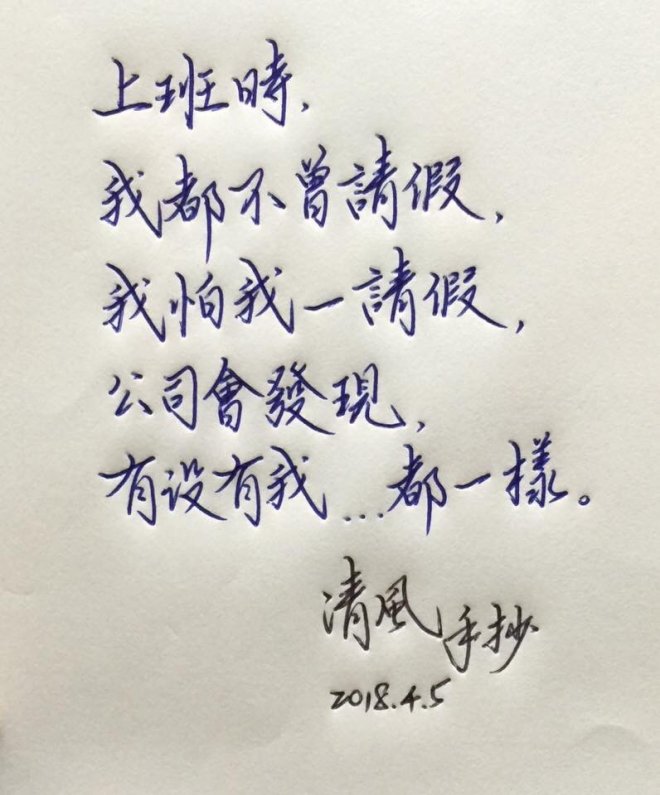 上班時,
我都不曾請假,
我怕我一請假,
公司會發現,
有没有我...都一樣。
清風手抄
2018.4.5